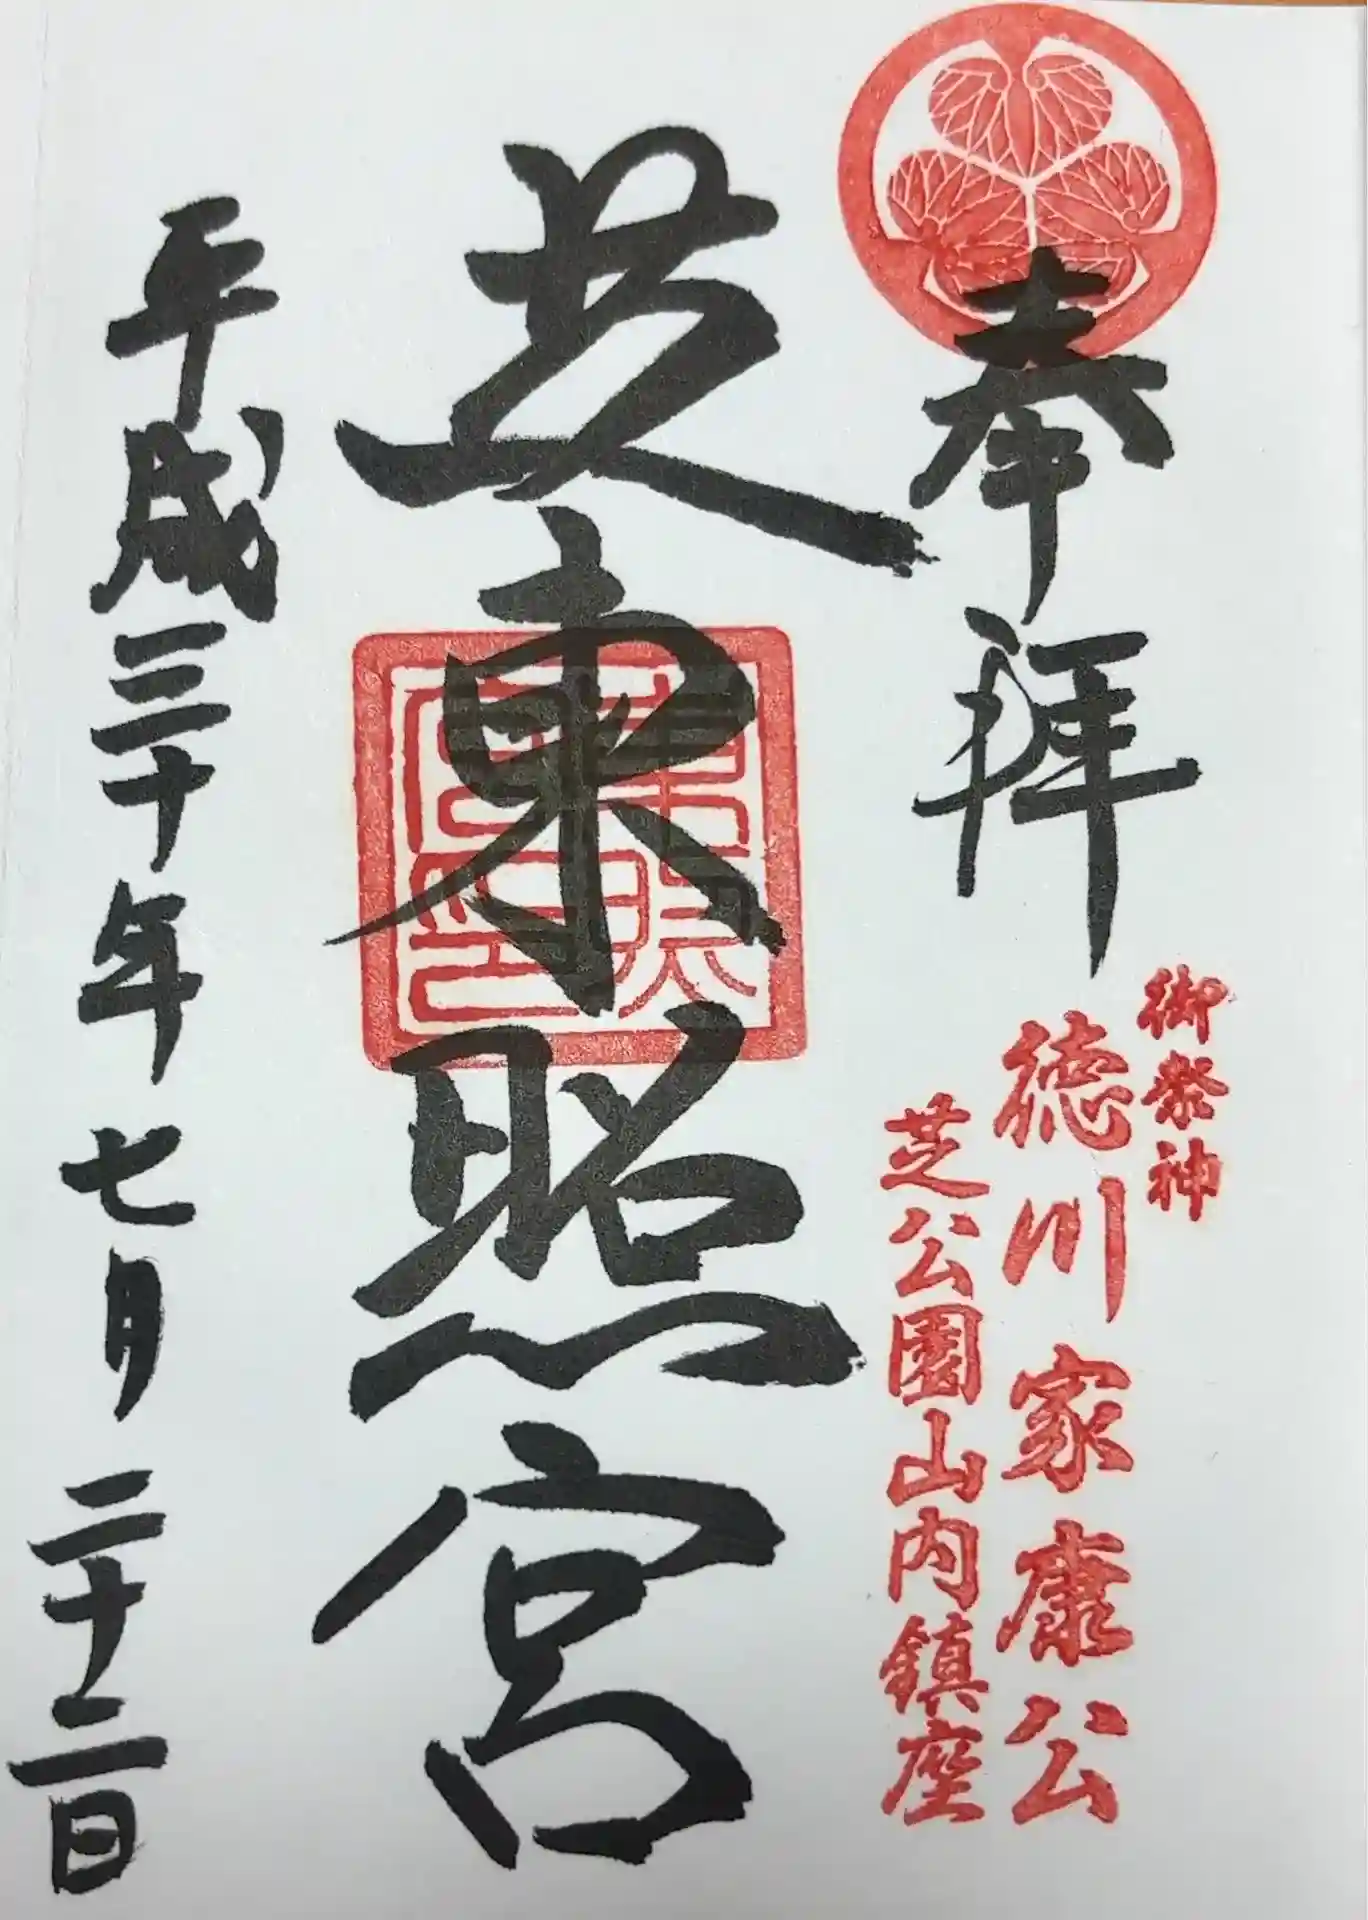 奉拝
御祭神
徳川家康公
芝公園山内鎮座
芝東照宮
東照宮印
平成三十年七月二十二日